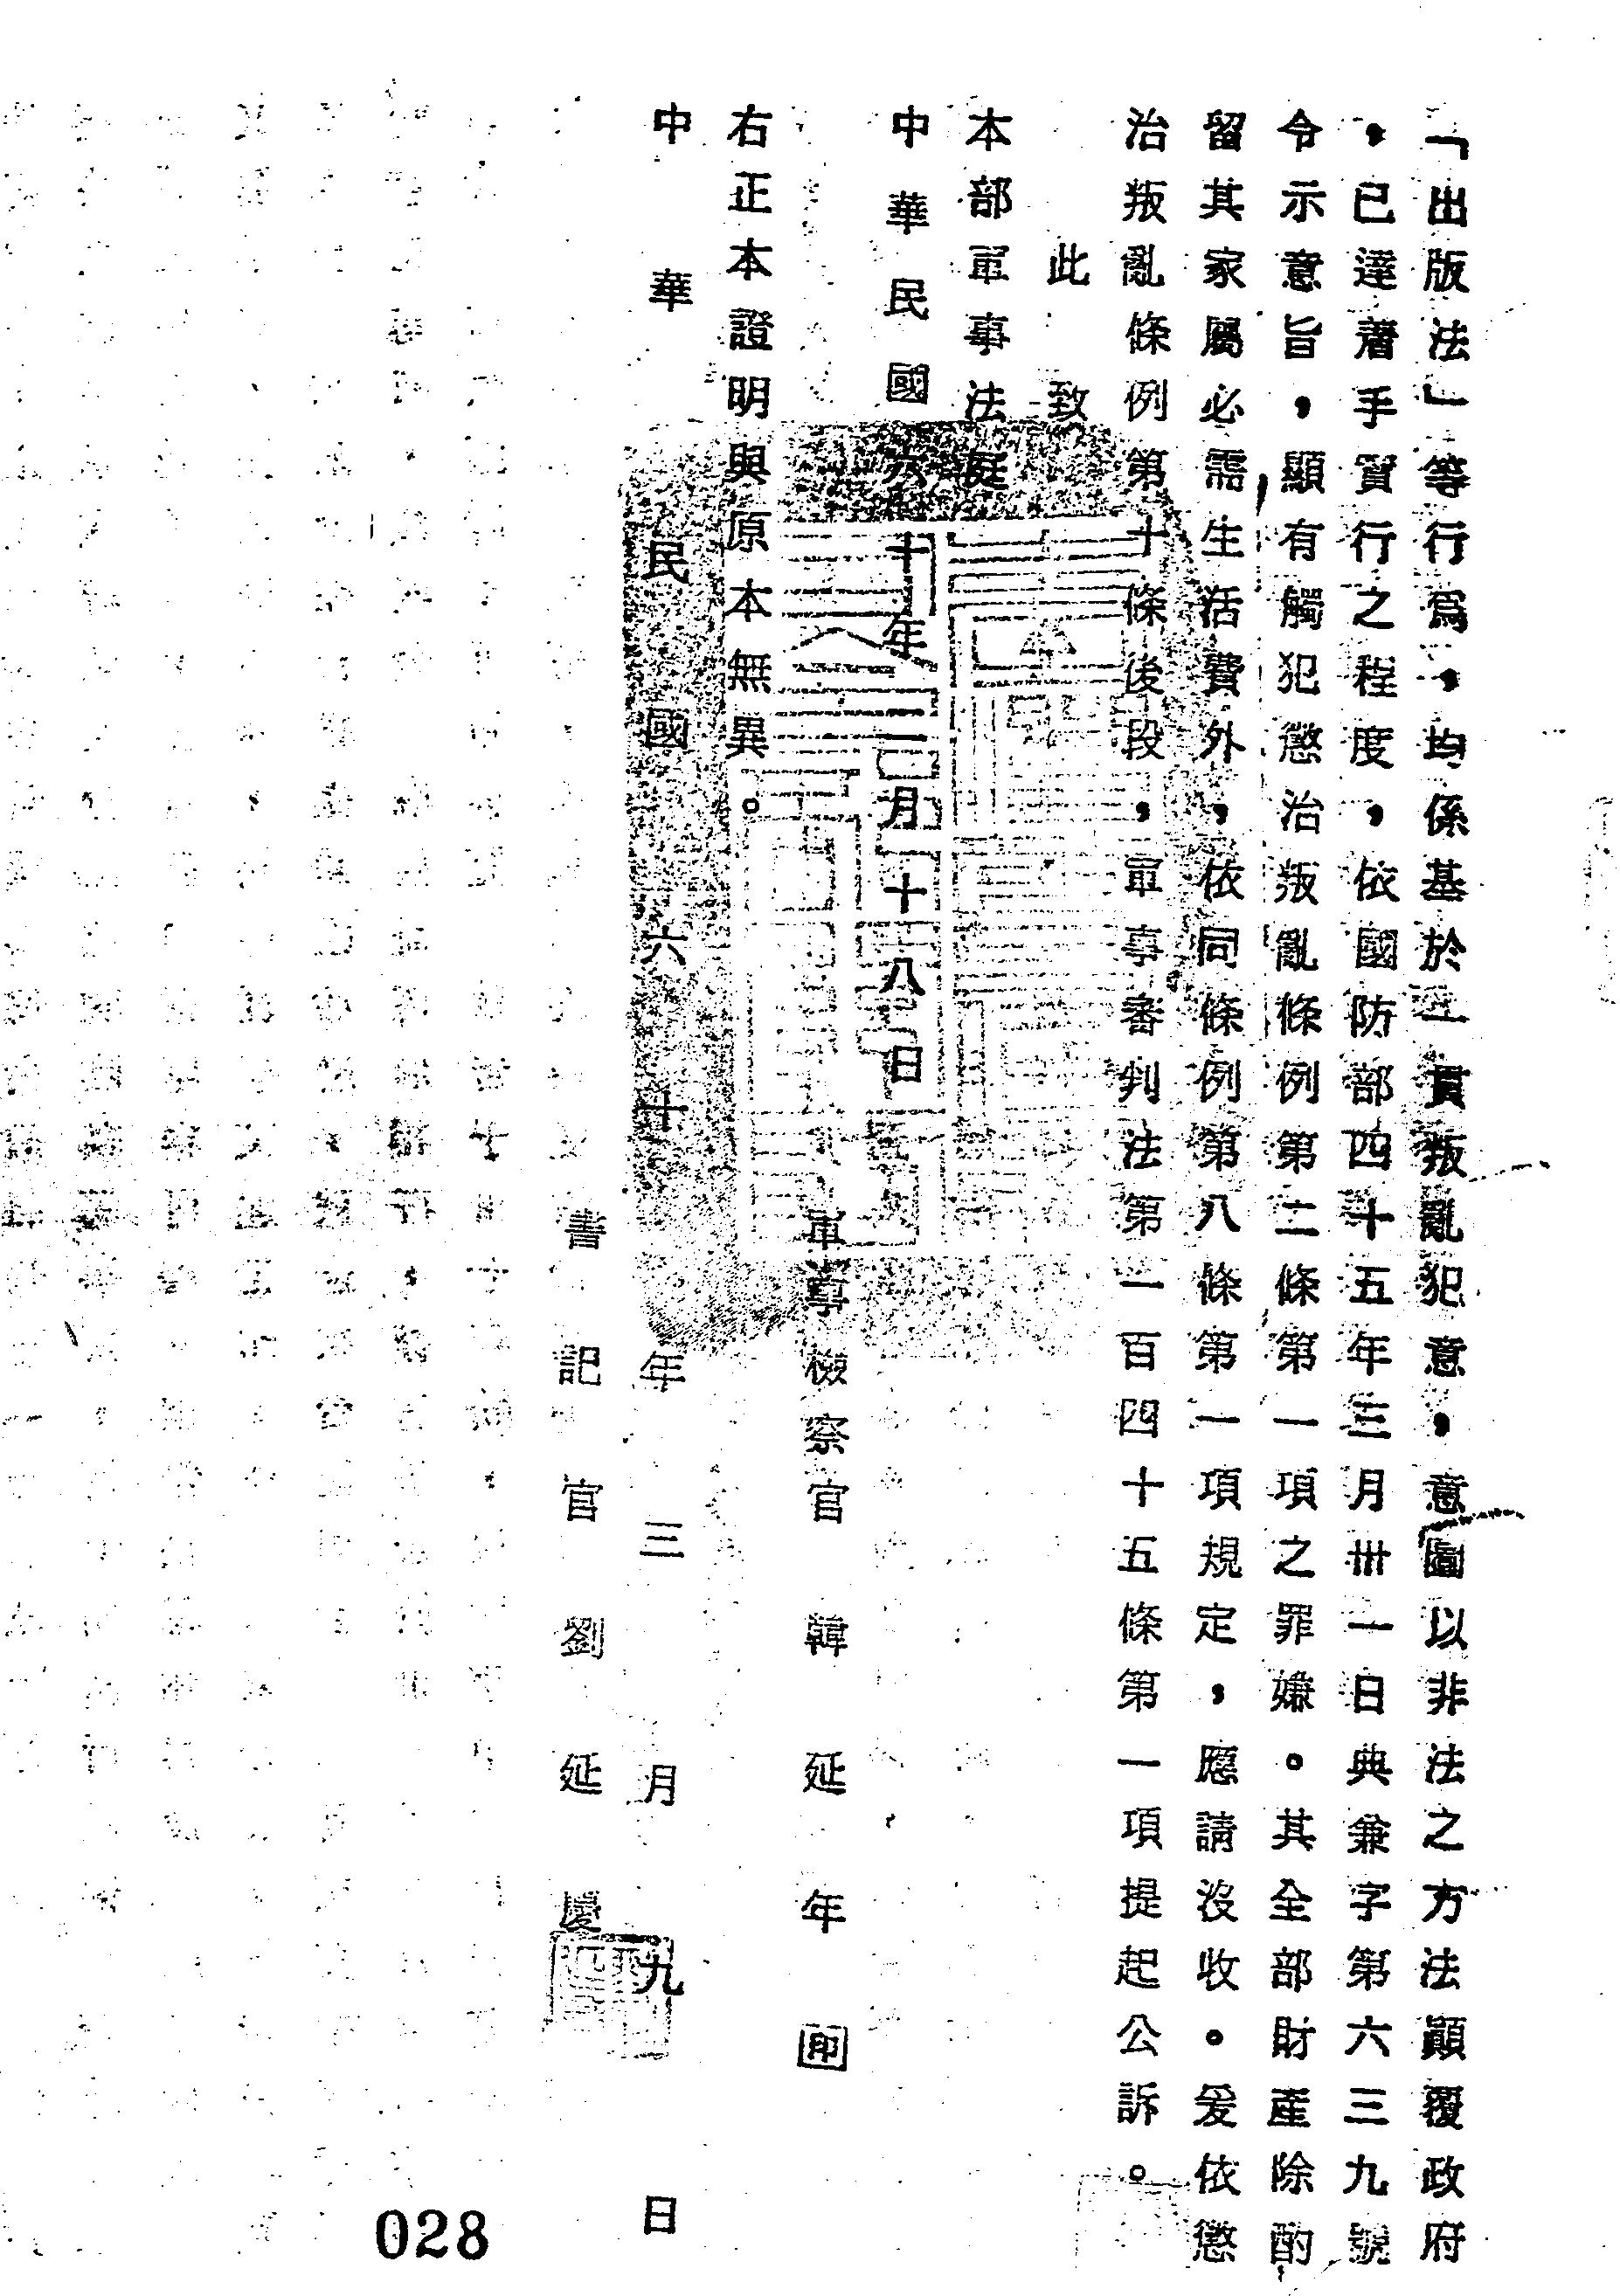 「出版法」等行為，均係基於一貫叛亂犯意，意圖以非法之方法顚覆政府
，已達著手實行之程度，依國防部四十五年三月卅一日典兼字第六三九號
令示意旨，顯有觸犯懲治叛亂條例第二條第一項之罪嫌。其全部財產除酌
留其家屬必需生活費外，依同條例第八條第一項規定，應請沒收。爰依懲
治叛亂條例第十條後段，軍事審判法第一百四十五條第一項提起公訴。
此致
本部軍事法庭
中華民國六十年二月十八日
軍事檢察官 韓延年 印
右正本證明與原本無異。
中華民國六十年三月九日
書記官 劉延慶
028